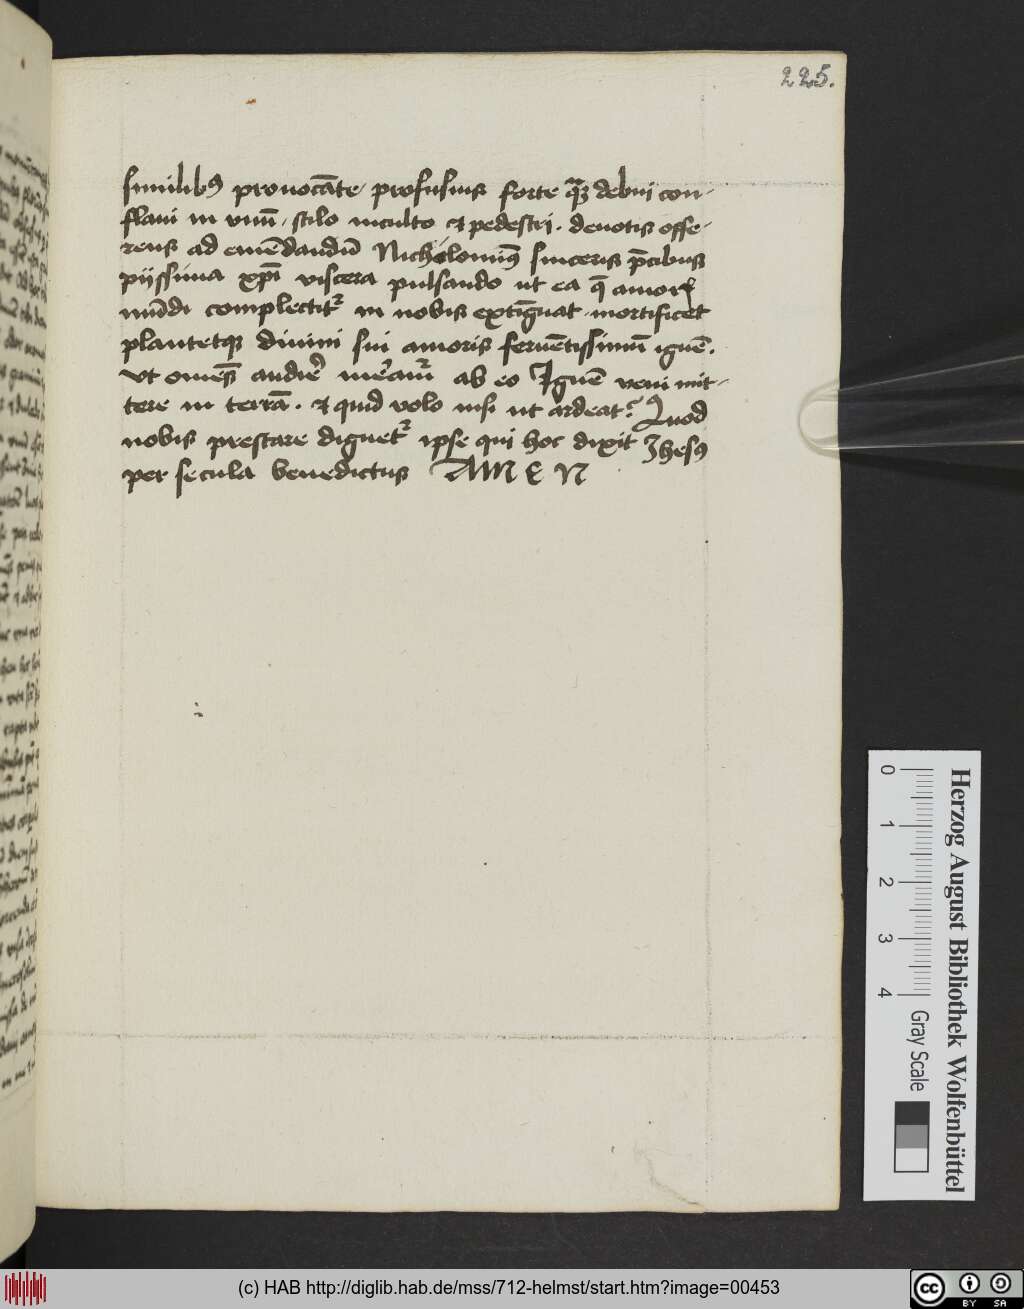 225.
similibꝫ prouocāte profusius forte qᷓꝫ debui con-
flaui in vnū. stilo inculto et pedestri. deuotis offe-
rens ad emēdandū Nicholomꝫ sinceris p̄cibus
pijssima xp̄i viscera pulsando ut ea q̄ amorē
mūdi complectitᷣ in nobis extīguat mortificet
plantetqꝫ diuini sui amoris feruētissimū ignē.
Vt om̄es audiē meām̄ ab eo Ignē veni mit-
tere in terrā. et quid volo nisi ut ardeat? Quod
nobis prestare dignetᷣ ipse qui hoc dixit Ihesꝰ
per secula benedictus AMEN
Herzog August Bibliothek Wolfenbüttel
0 1 2 3 4 Gray Scale
(c) HAB http://diglib.hab.de/mss/712-helmst/start.htm?image=00453
CC BY SA